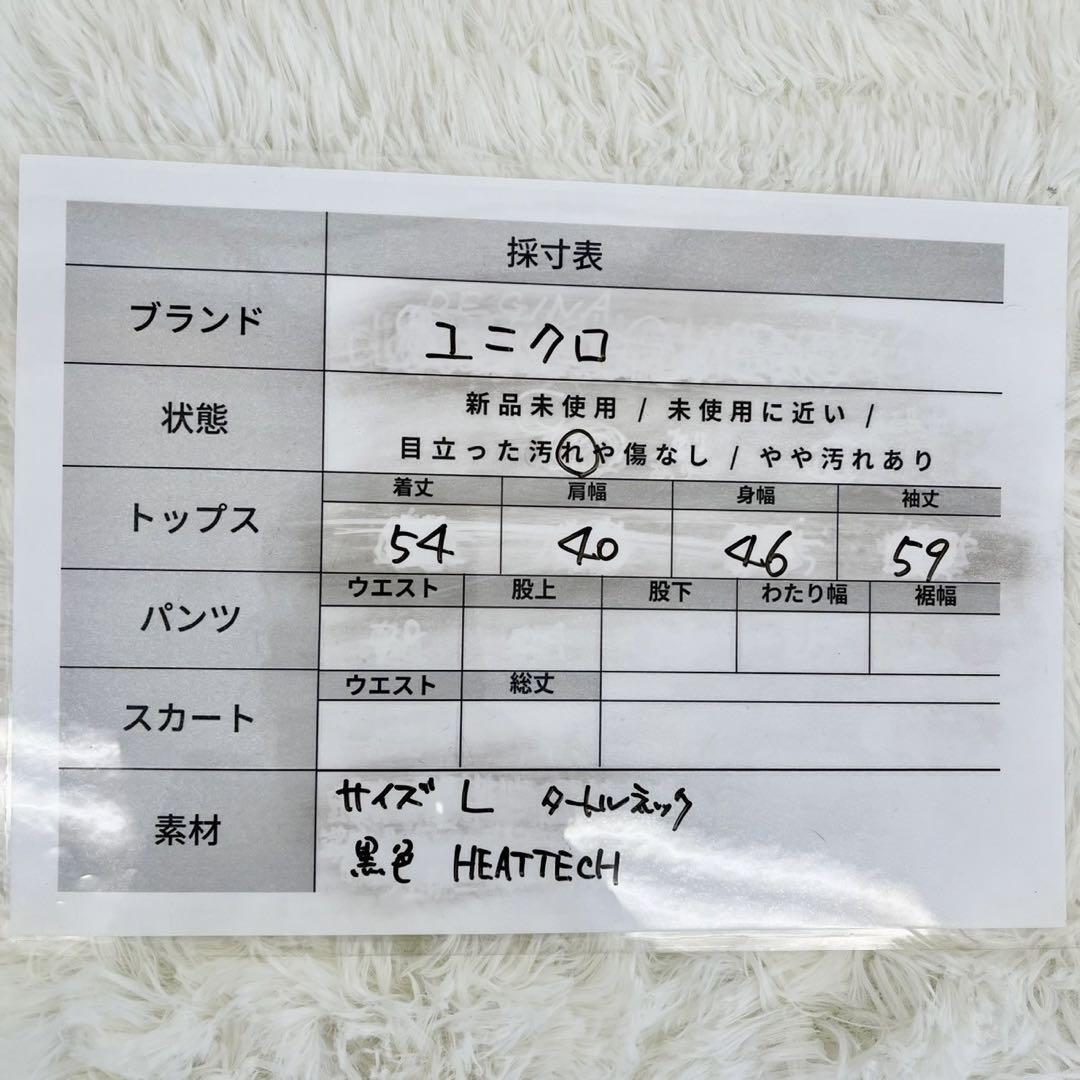 採寸表
ブランド ユニクロ
状態 新品未使用 / 未使用に近い /
目立った汚れや傷なし / やや汚れあり
トップス 着丈 肩幅 身幅 袖丈
54 40 46 59
パンツ ウエスト 股上 股下 わたり幅 裾幅
スカート ウエスト 総丈
素材 サイズ L タートルネック
黒色 HEATTECH